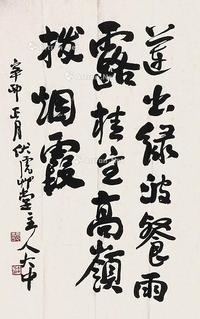 蓮出绿波餐雨
露桂生高嶺
拨烟霞
辛卯正月伏虎艸堂主人大中